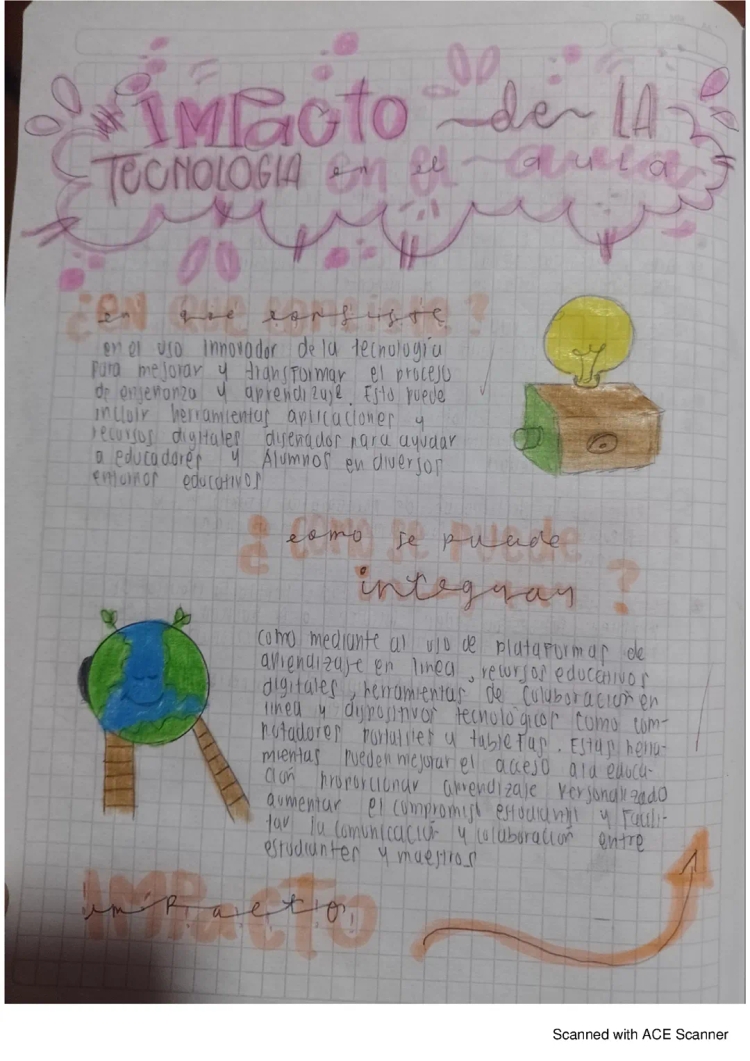 IMPacto de LA
TECNOLOGIA en el aula
¿En que consiste?
en el uso innovador de la tecnología
para mejorar y transformar el proceso
de enseñanza y aprendizaje. Esto puede
incluir herramientas aplicaciones y
recursos digitales diseñador para ayudar
a educadores y Alumnos en diversos
entornos educativos
¿Como se puede
integrar?
como mediante al uso de plataformas de
aprendizaje en linea, recursos educativos
digitales, herramientas de colaboración en
linea y dispositivos tecnológicos como com-
putadores portatiles y tabletas. Estas herra-
mientas pueden mejorar el acceso a la educa-
ción proporcionar aprendizaje personalizado
aumentar el compromiso estudiantil y facili-
tar la comunicación y colaboración entre
estudiantes y maestros
IMPacTo
Scanned with ACE Scanner